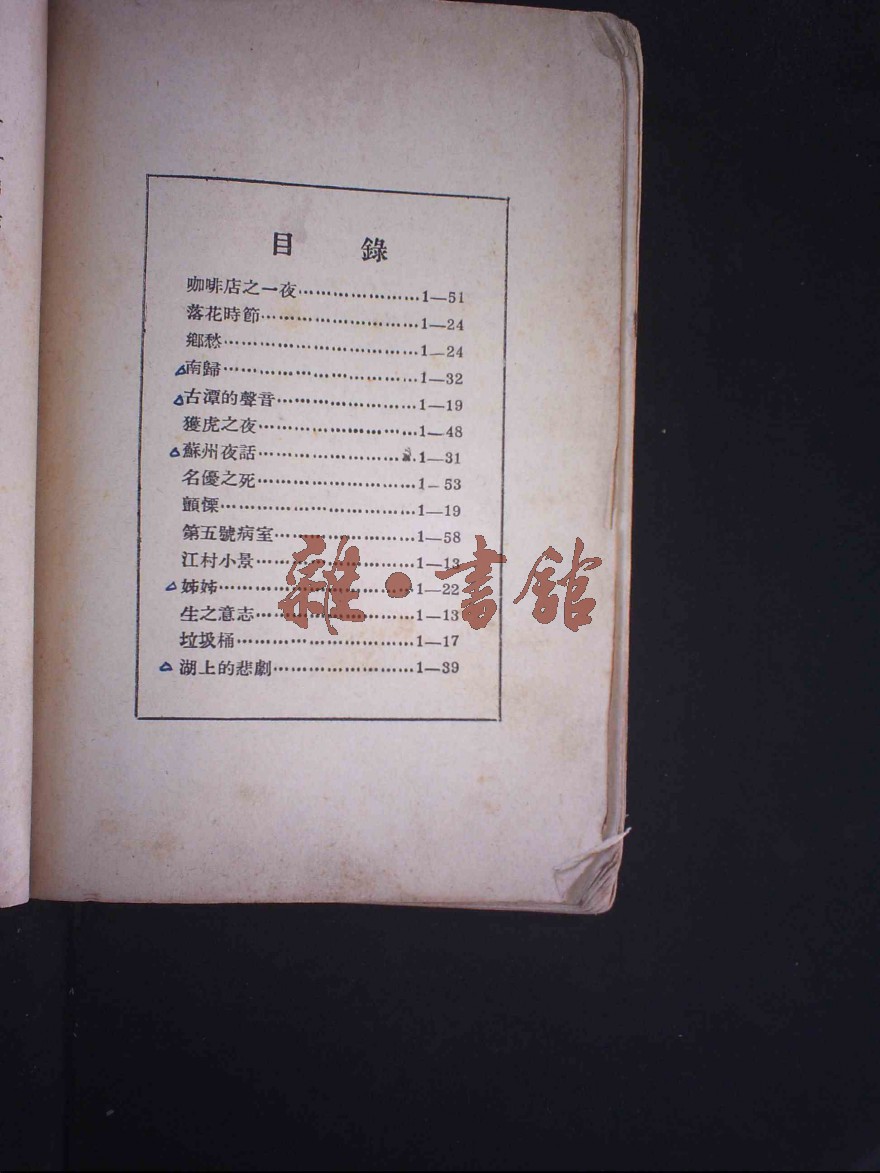 目 錄
咖啡店之一夜…………………1—51
落花時節…………………1—24
鄉愁…………………1—24
南歸…………………1—32
古潭的聲音…………………1—19
獲虎之夜…………………1—48
蘇州夜話…………………1—31
名優之死…………………1—53
顫慄…………………1—19
第五號病室…………………1—58
江村小景…………………1—13
姊姊…………………1—22
生之意志…………………1—13
垃圾桶…………………1—17
湖上的悲劇…………………1—39
雜·書館